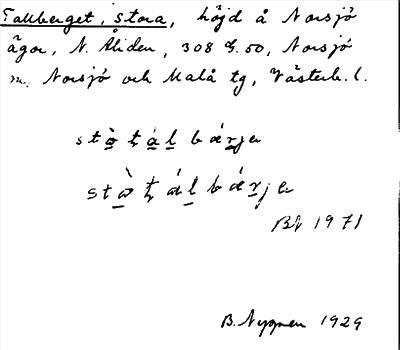 Tallberget, Stora, höjd å Norsjö
ägor, N. Åliden, 308 G. 50, Norsjö
sn, Norsjö och Malå tg, Västerb. l.
stò̠ ţá̠l̠ bǽr̠je
stò̠ ţál̠ bǽr̠je
1971
B. Nyman 1929